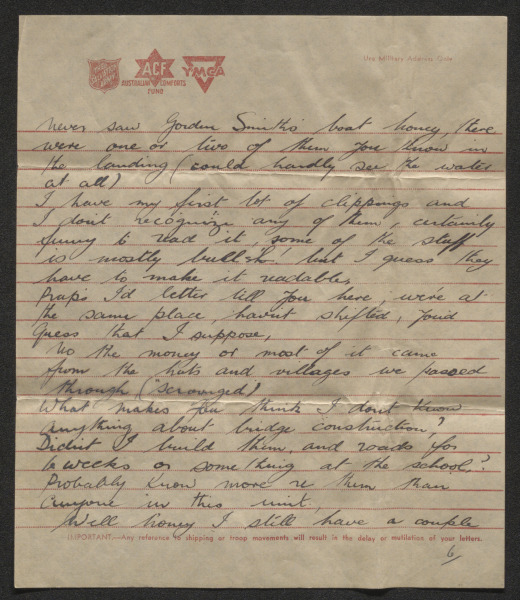 THE SALVATION ARMY
ACF
AUSTRALIAN COMFORTS
FUND
YMCA
Use Military Address Only
never saw Gordon Smith's boat honey, there
were one or two of them you know in
the landing (could hardly see the water
at all)
I have my first lot of clippings and
I don't recognize any of them, certainly
funny to read it, some of the stuff
is mostly bullsh. but I guess they
have to make it readable,
Praps I'd better tell you here, we're at
the same place, havn't shifted, you'd
guess that I suppose,
No the money or most of it came
from the huts and villages we passed
through ("scrounged")
What makes you think I don't know
anything about bridge construction?
Didn't I build them, and roads for
6 weeks or something at the school?
Probably know more re them than
anyone in this unit,
Well honey I still have a couple
IMPORTANT.—Any reference to shipping or troop movements will result in the delay or mutilation of your letters.
6/